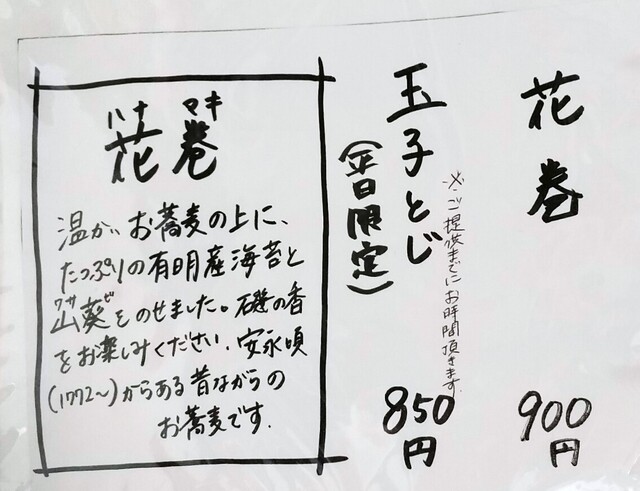 花巻
900
円
玉子とじ
(平日限定)
※ご提供までにお時間頂きます.
850
円
ハナマキ
花巻
温かいお蕎麦の上に、
たっぷりの有明産海苔と
ワサビ
山葵をのせました。磯の香
をお楽しみください. 安永頃
(1772〜)からある昔ながらの
お蕎麦です.